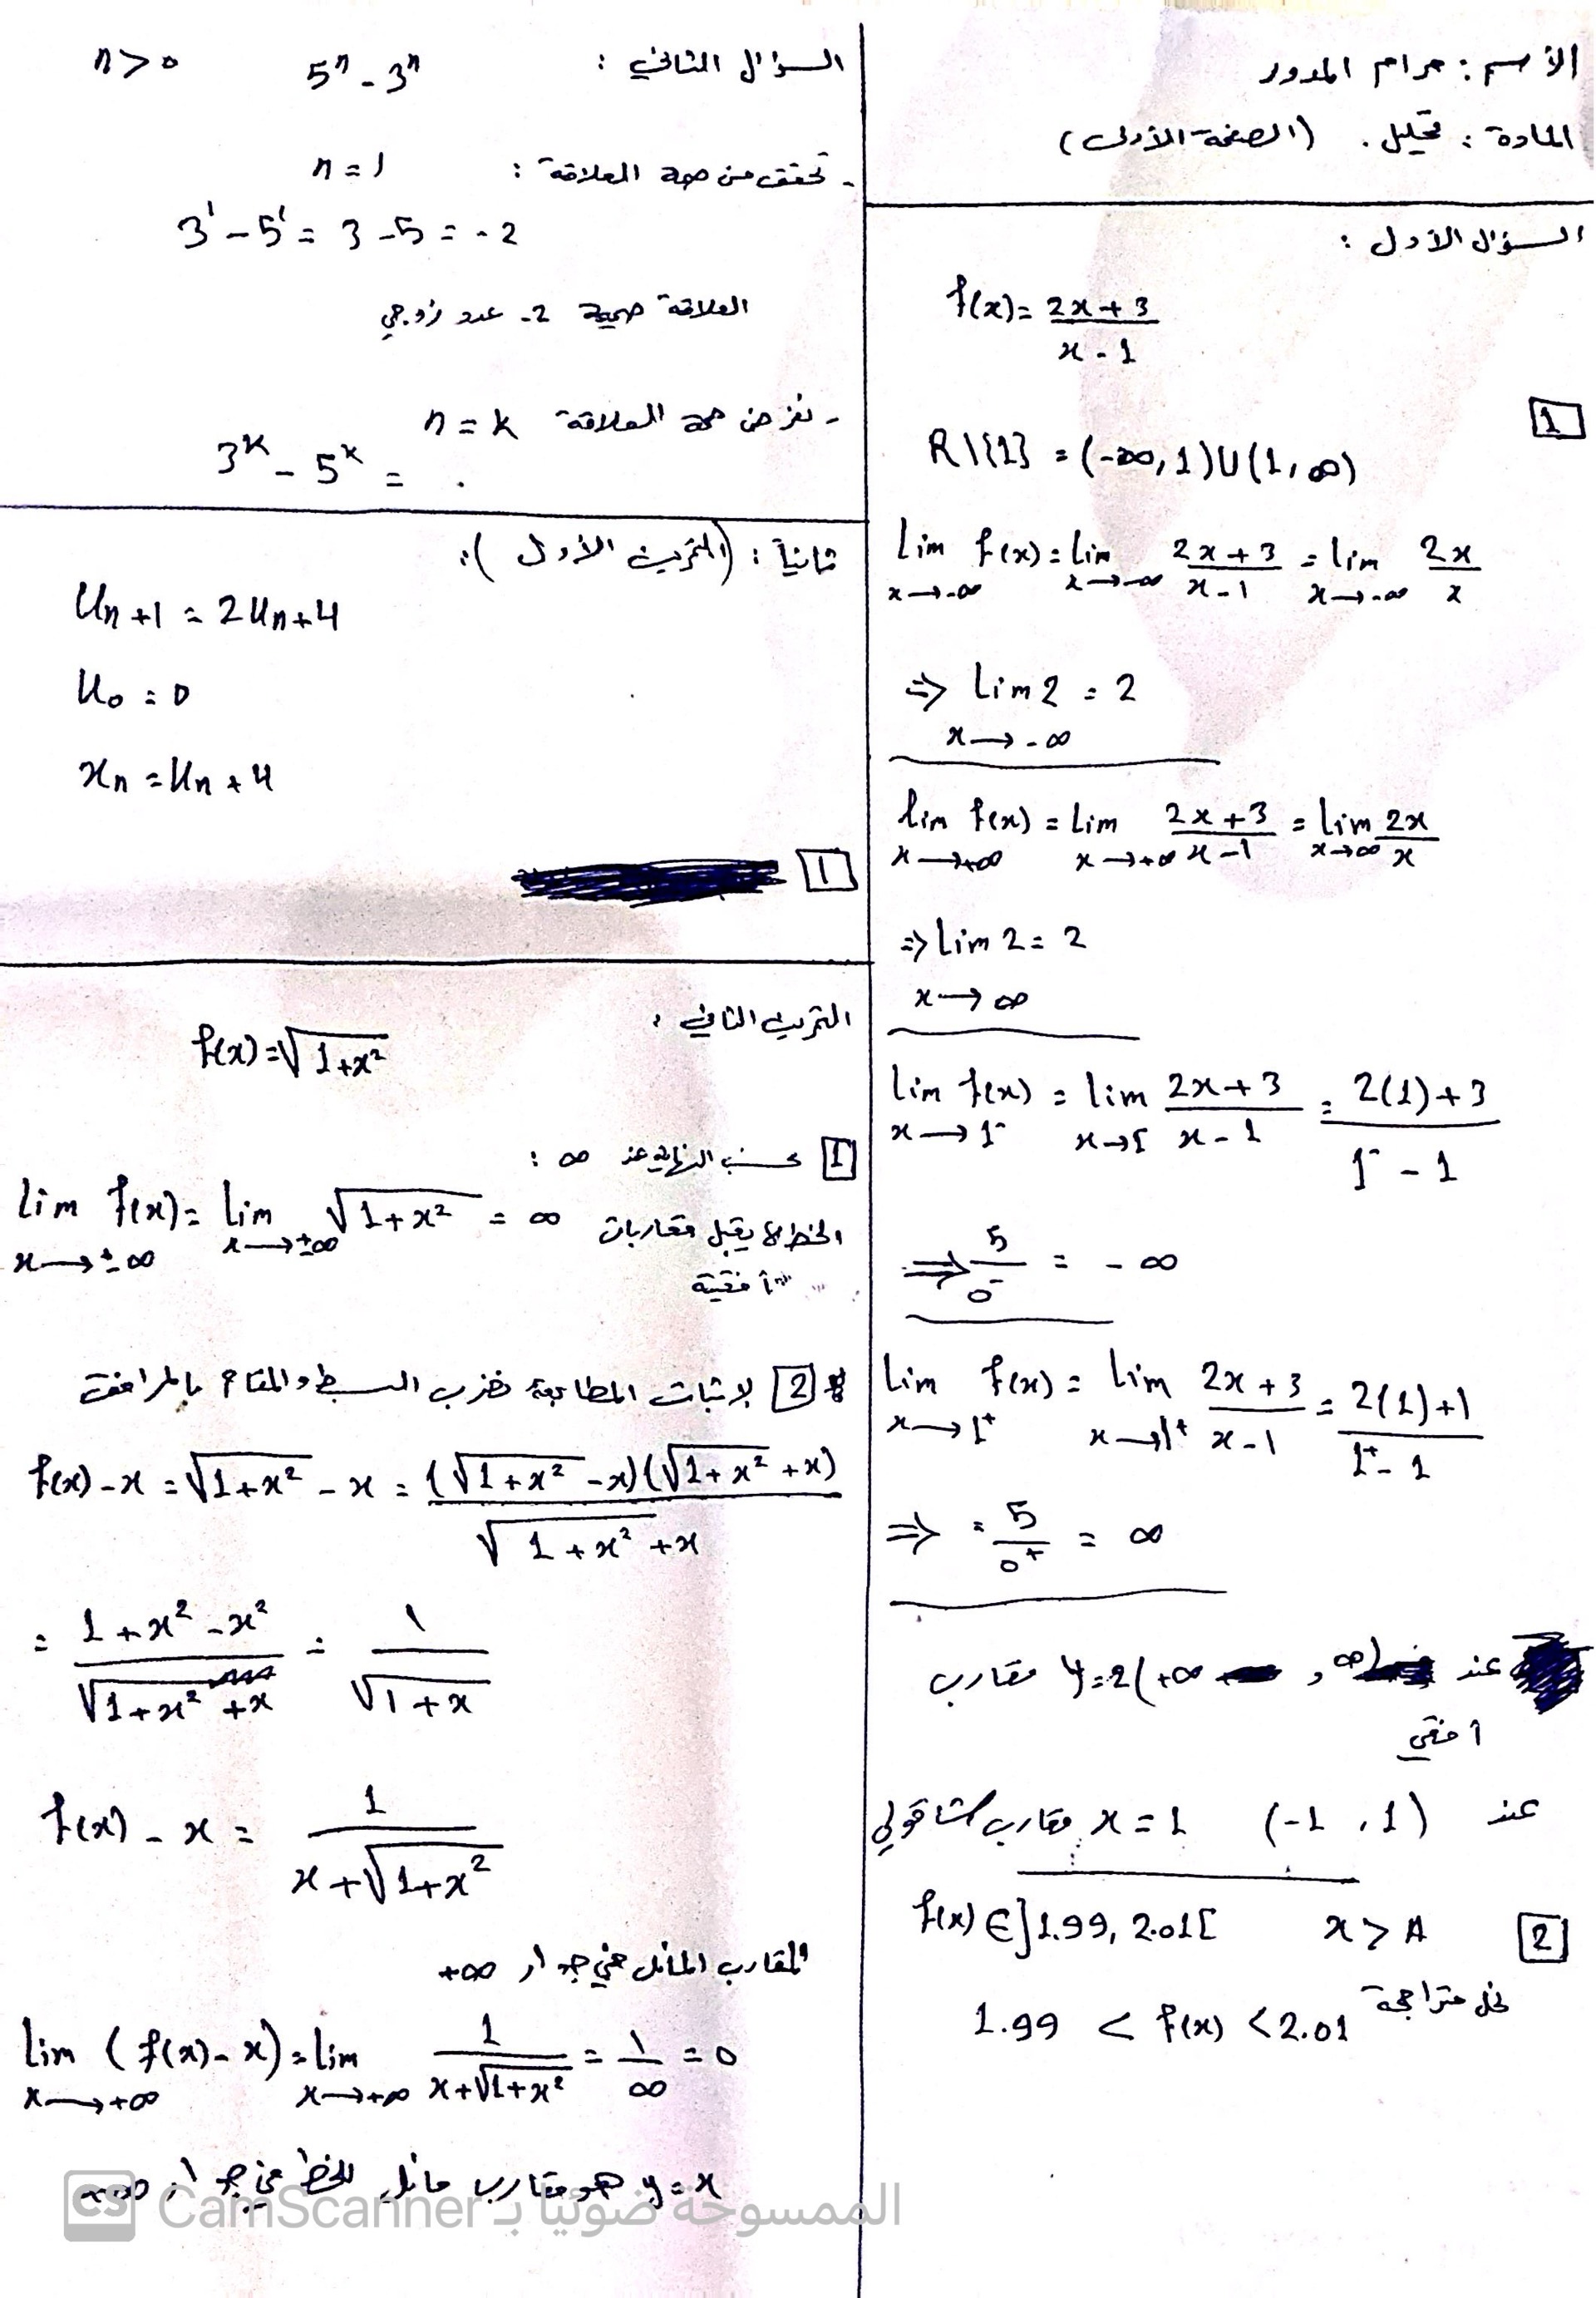 الأسم : مرام المدور
المادة : تحليل . (الصفحة الأولى)
السؤال الأول :
f(x) = \frac{2x+3}{x-1}
1
R\{1} = (-∞, 1)U(1, ∞)
lim_{x→-∞} f(x) = lim_{x→-∞} \frac{2x+3}{x-1} = lim_{x→-∞} \frac{2x}{x}
⇒ lim_{x→-∞} 2 = 2
lim_{x→+∞} f(x) = lim_{x→+∞} \frac{2x+3}{x-1} = lim_{x→∞} \frac{2x}{x}
⇒ lim_{x→∞} 2 = 2
lim_{x→1^-} f(x) = lim_{x→1^-} \frac{2x+3}{x-1} = \frac{2(1)+3}{1^- - 1}
⇒ \frac{5}{0^-} = -∞
lim_{x→1^+} f(x) = lim_{x→1^+} \frac{2x+3}{x-1} = \frac{2(1)+1}{1^+ - 1}
⇒ = \frac{5}{0^+} = ∞
عند (∞ , +∞) y=2 مقارب
أفقي
عند (-1 , 1) x=1 مقارب شاقولي
2 x > A f(x) ∈ ]1.99, 2.01[
لحل متراجحة 1.99 < f(x) < 2.01
السؤال الثاني : 5^n - 3^n n>0
- تحقق من صحة العلاقة : n=1
3^1 - 5^1 = 3 - 5 = -2
العلاقة صحيحة -2 عدد زوجي
- نفرض صحة العلاقة n=k
3^k - 5^k = .
ثانياً : (التمرين الأول ):
U_n+1 = 2U_n+4
U_0 = 0
x_n = U_n + 4
1
التمرين الثاني :
f(x) = \sqrt{1+x^2}
1 حسب النهاية عند ∞ :
lim_{x→±∞} f(x) = lim_{x→±∞} \sqrt{1+x^2} = ∞ الخط لا يقبل مقاربات
أفقية
2 لإثبات المطابقة نضرب البسط والمقام بالمرافق
f(x)-x = \sqrt{1+x^2} - x = \frac{(\sqrt{1+x^2}-x)(\sqrt{1+x^2}+x)}{\sqrt{1+x^2}+x}
= \frac{1+x^2-x^2}{\sqrt{1+x^2}+x} = \frac{1}{\sqrt{1+x}}
f(x) - x = \frac{1}{x+\sqrt{1+x^2}}
المقارب المائل في جوار +∞
lim_{x→+∞} (f(x)-x) = lim_{x→+∞} \frac{1}{x+\sqrt{1+x^2}} = \frac{1}{∞} = 0
y=x هو مقارب مائل للخط في جوار +∞
CS الممسوحة ضوئيا بـ CamScanner